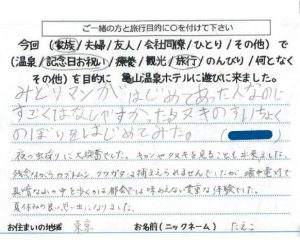 ご一緒の方と旅行目的に○を付けて下さい
今回(家族/夫婦/友人/会社同僚/ひとり/その他)で
(温泉/記念日お祝い/療養/観光/旅行/のんびり/何となく
その他)を目的に 亀山温泉ホテルに遊びに来ました。
みどりマンがはじめてあった人なのに
すごくはなしやすかたヌキのすいちょく
のぼりをはじめてみた。
夜の虫採りに大興奮でした。キョンやタヌキを見ることも出来ました。
残念ながらカブトムシ、クワガタは捕まえられませんでしたが、懐中電灯で
真暗な山の中を歩くのは都会では味わえない貴重な体験でした。
夏休みの良い思い出になりました。
お住まいの地域 東京 お名前(ニックネーム) たえこ